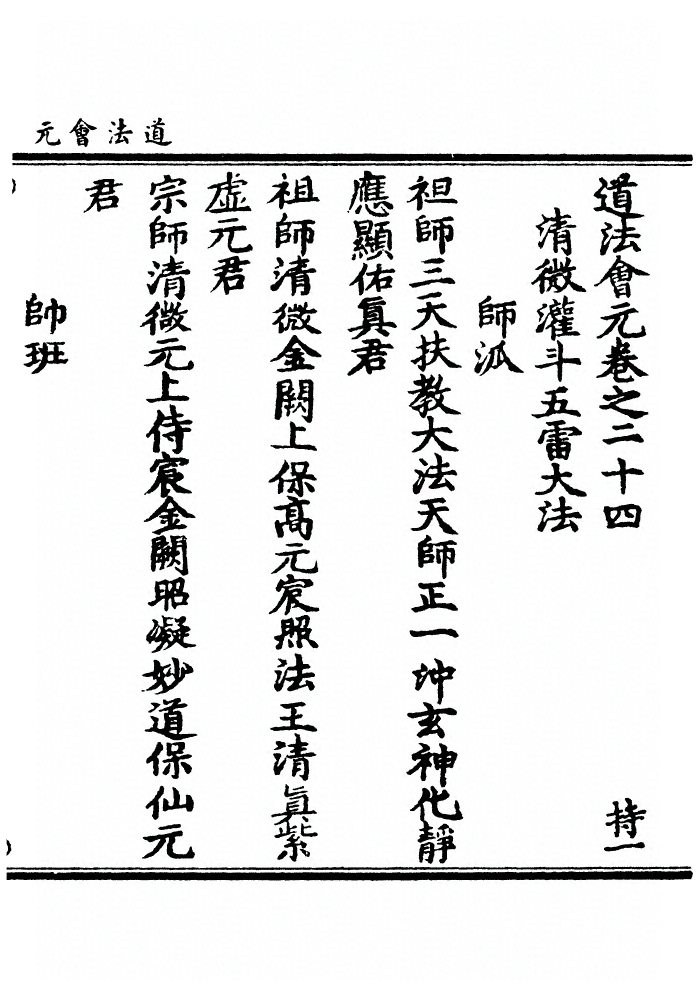 道法會元
道法會元卷之二十四　持一
清微灌斗五雷大法
師派
祖師三天扶教大法天師正一冲玄神化靜
應顯佑眞君
祖師清微金闕上保高元宸照法王清眞紫
虛元君
宗師清微元上侍宸金闕昭凝妙道保仙元
君
帥班